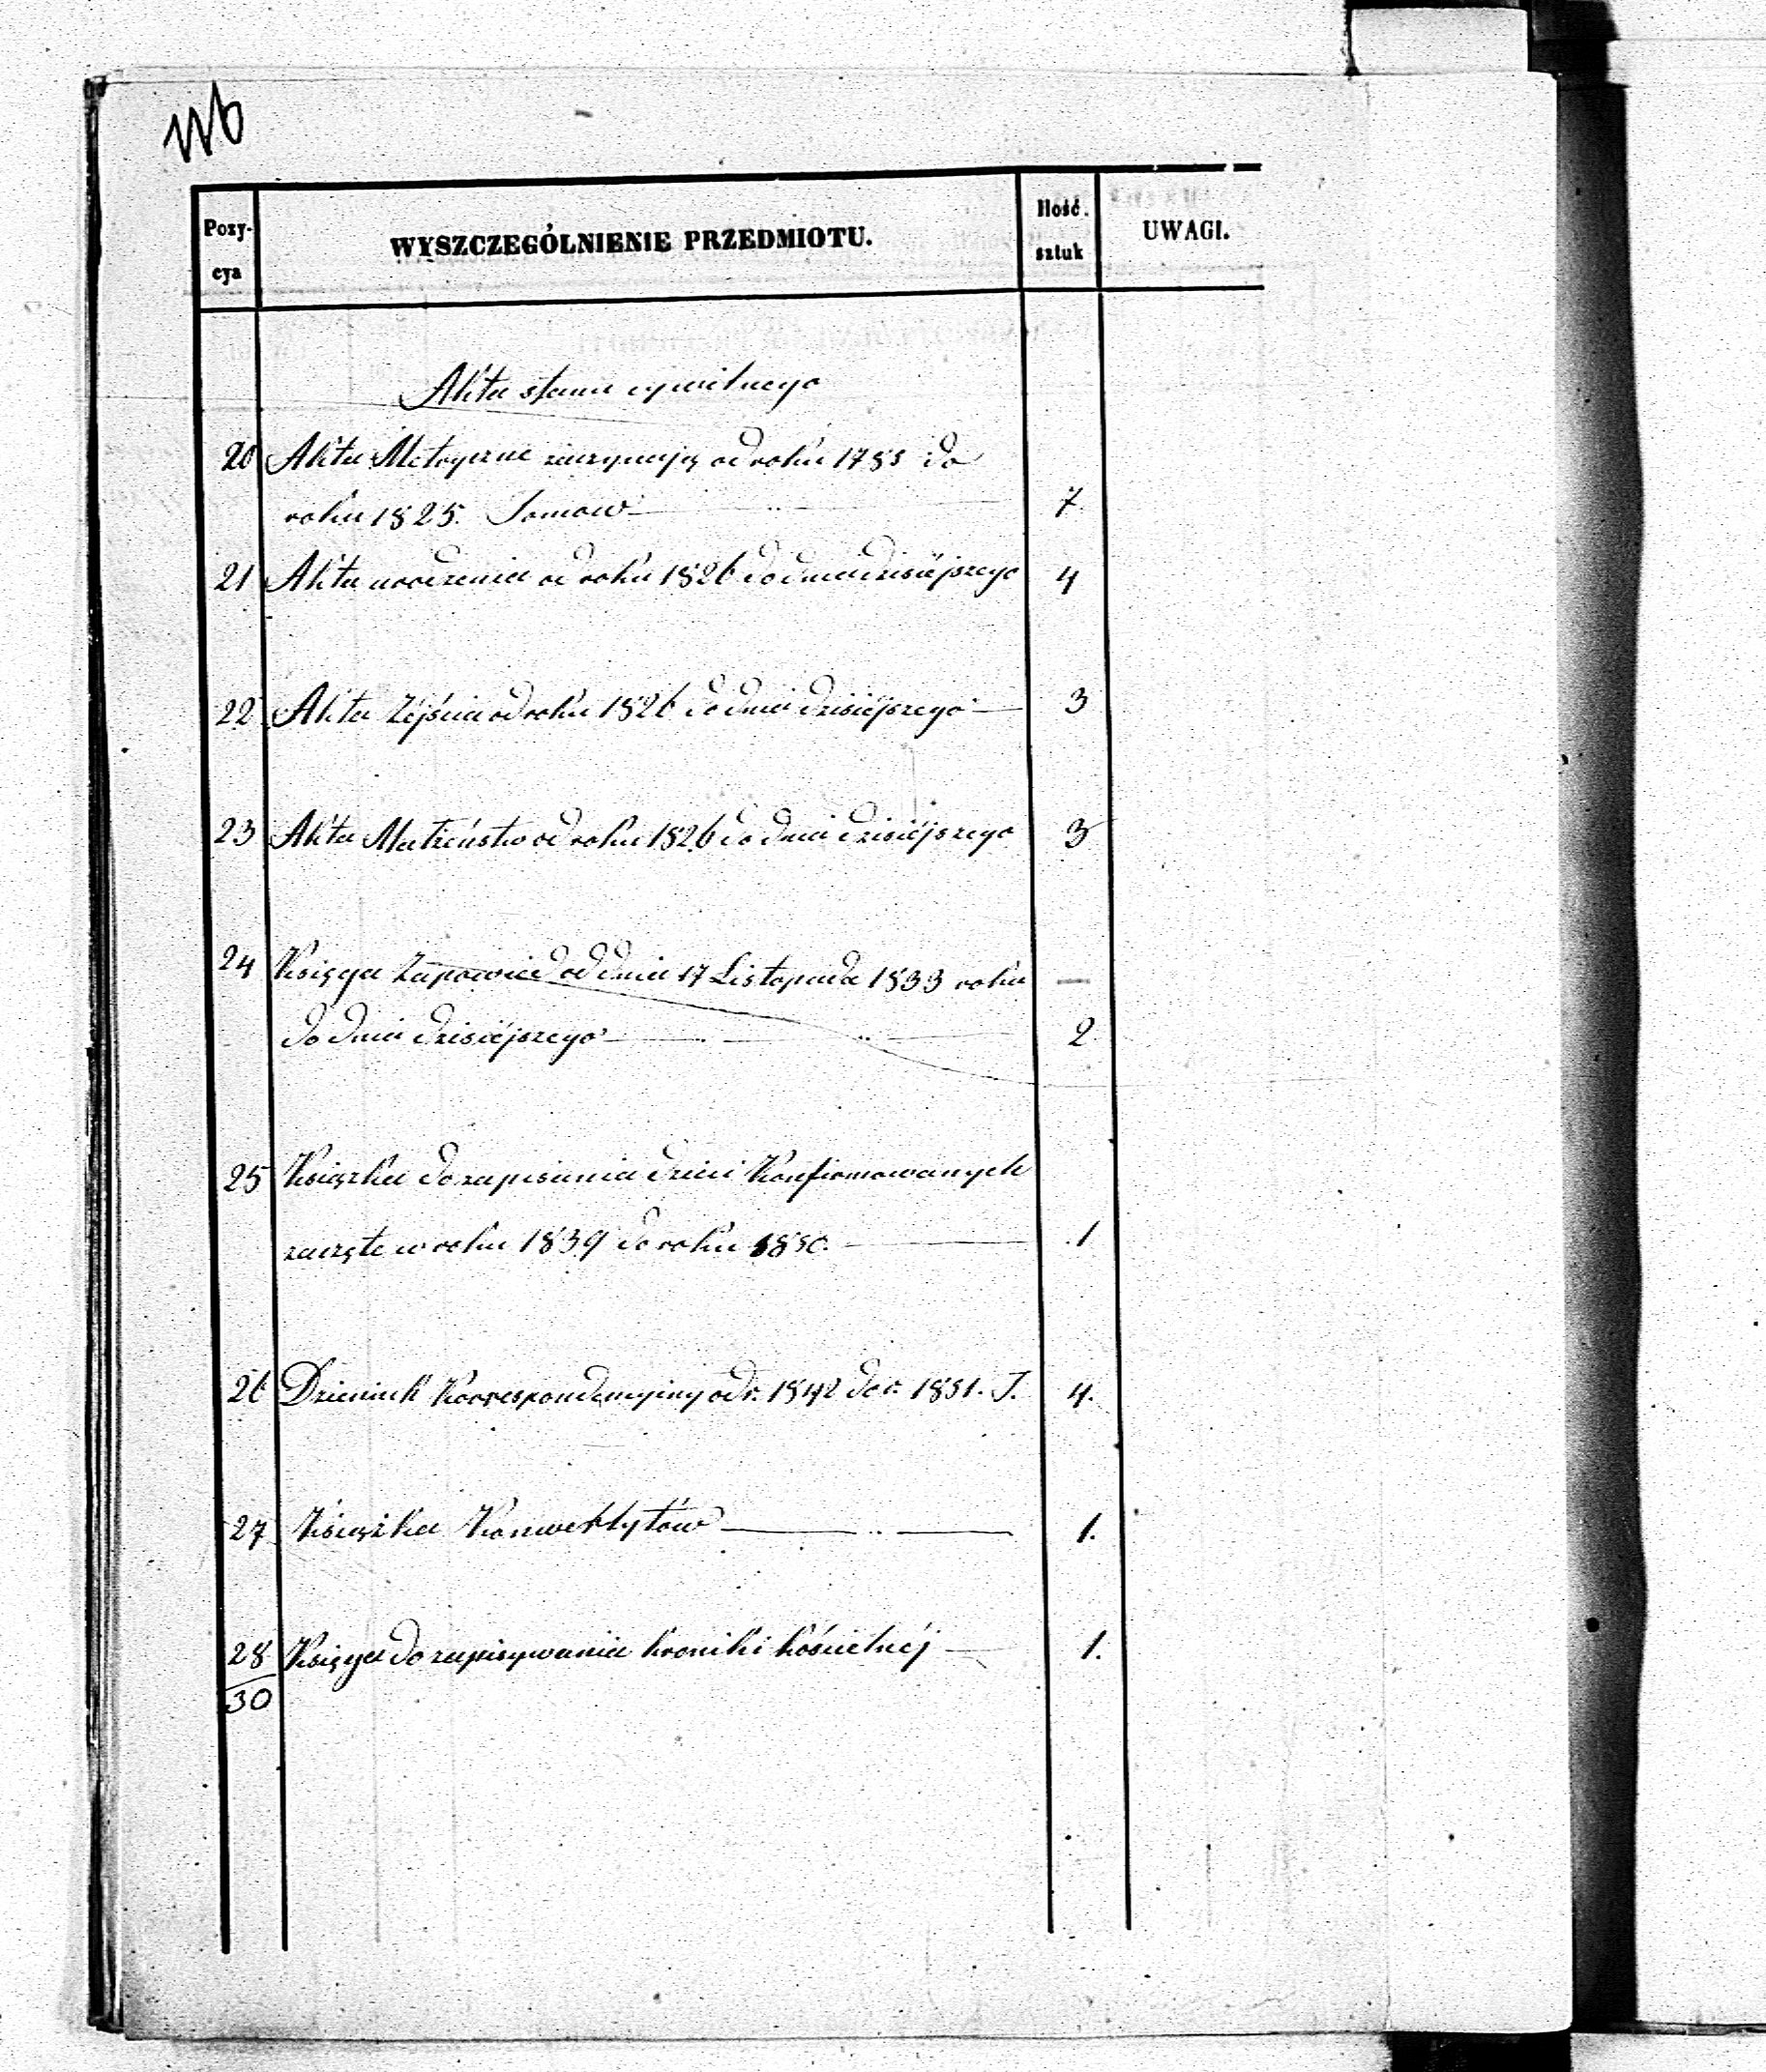 Pozy- WYSZCZEGÓLNIENIE PRZEDMIOTU. Ilość. UWAGI.
cya sztuk
Akta stanu cywilnego
20 Akta Metryczne zaczynają od roku 1785 do
roku 1825. Tomow 7.
21 Akta urodzenia od roku 1826 do dnia dzisiéjszego 4
22 Akta Zéjścia od roku 1826 do dnia dzisiéjszego 3
23 Akta Małżeństw od roku 1826 do dnia dzisiéjszego 3
24 Księga Zapowied od dnia 17 Listopada 1833 roku —
do dnia dzisiéjszego 2
25 Ksiąrka do zapisania dzieci Konfirmowanych
zaczęte w roku 1839 do roku 1850. 1
26 Dziennik Korrespondencyiny od r. 1842 do r. 1851. T. 4.
27 Książka Konwertytów 1.
28 Księga do zapisywania kroniki kościelnéj 1.
30